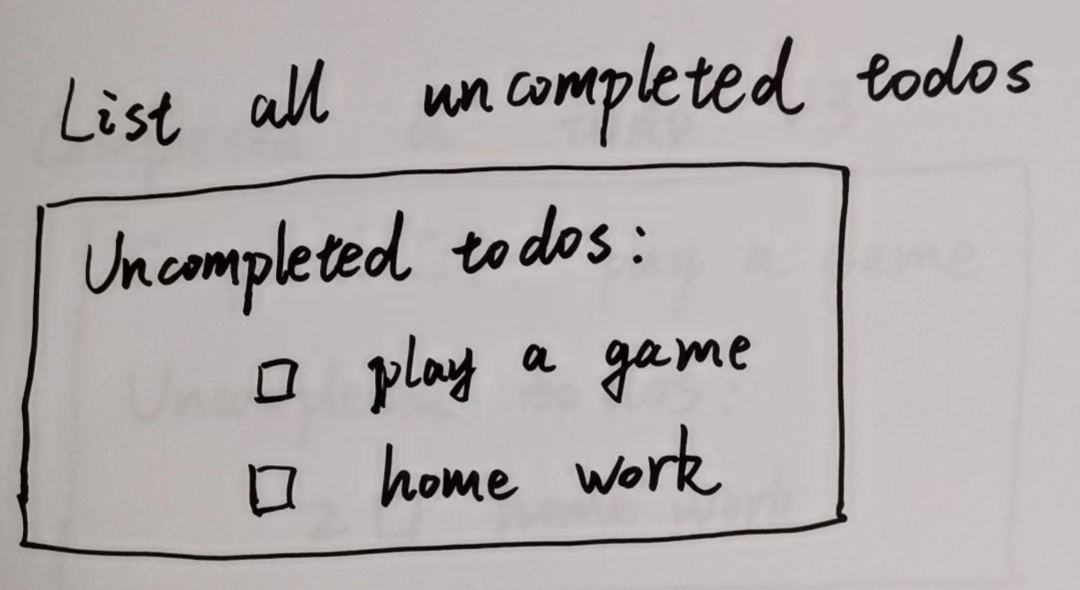 List all uncompleted todos
Uncompleted todos:
play a game
home work